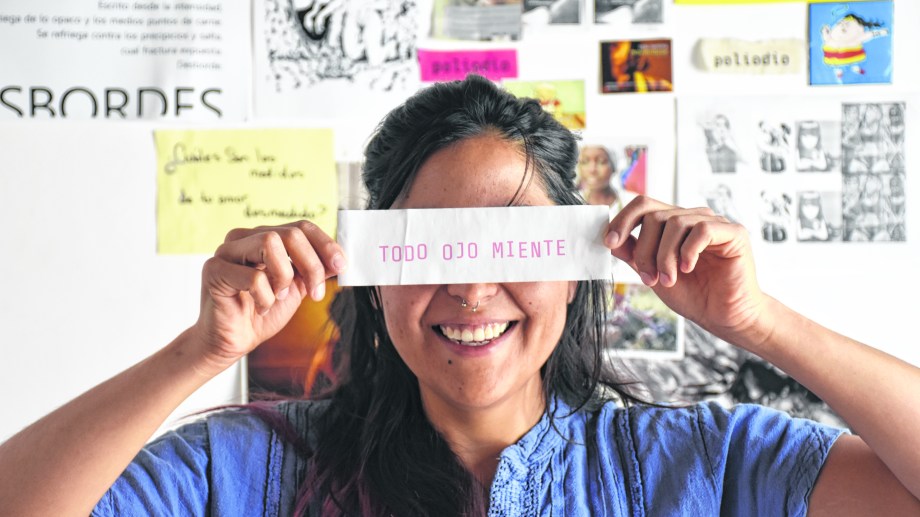 Escrito desde la intensidad,
de lo opaco y los medios puntos de carne.
Se refriega contra los precipicios y salta
cual fractura expuesta.
Desborda.
SBORDES
poliedio
poliedio
¿Cuáles son las
medidas
de tu amor
desmedido?
TODO OJO MIENTE